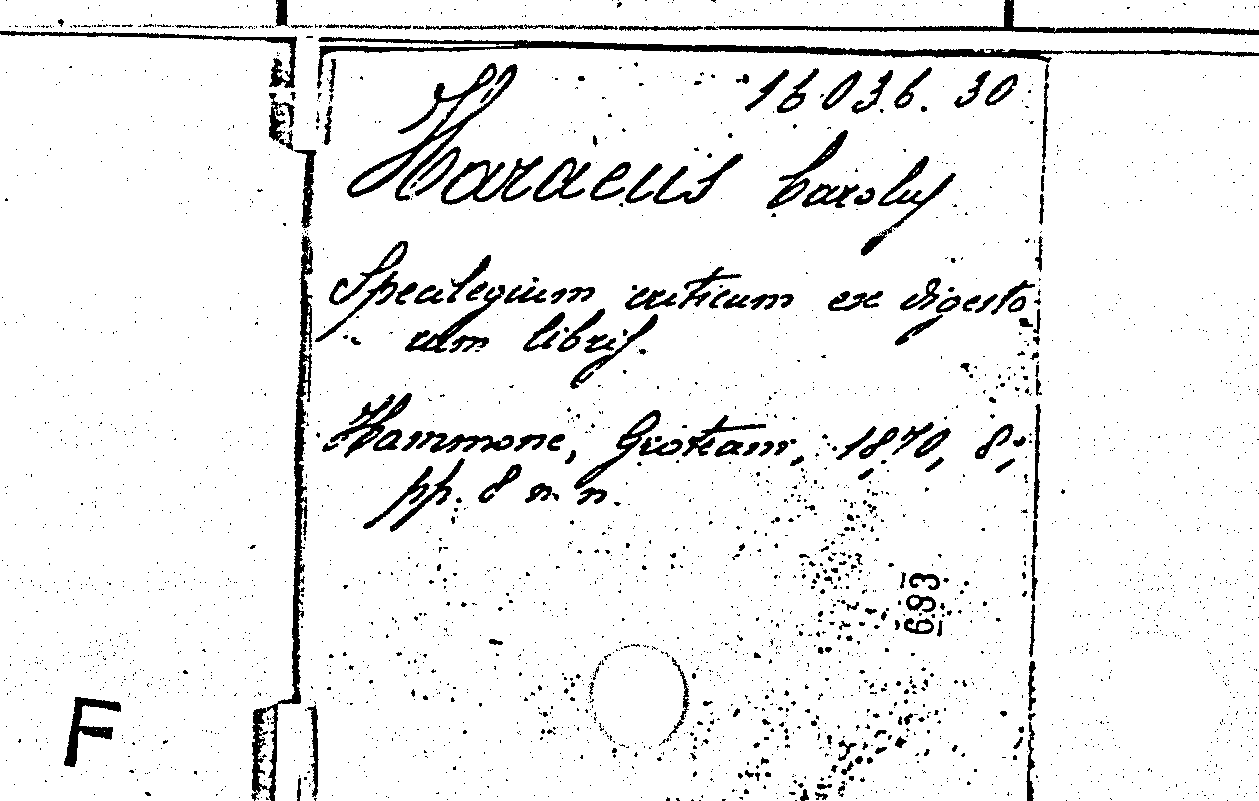 16036. 30
Haraeus Carolus
Specilegium criticum ex digesto-
rum libris.
Hammone, Grotiani, 1870, 8°,
pp. 8 n. n.
693
F